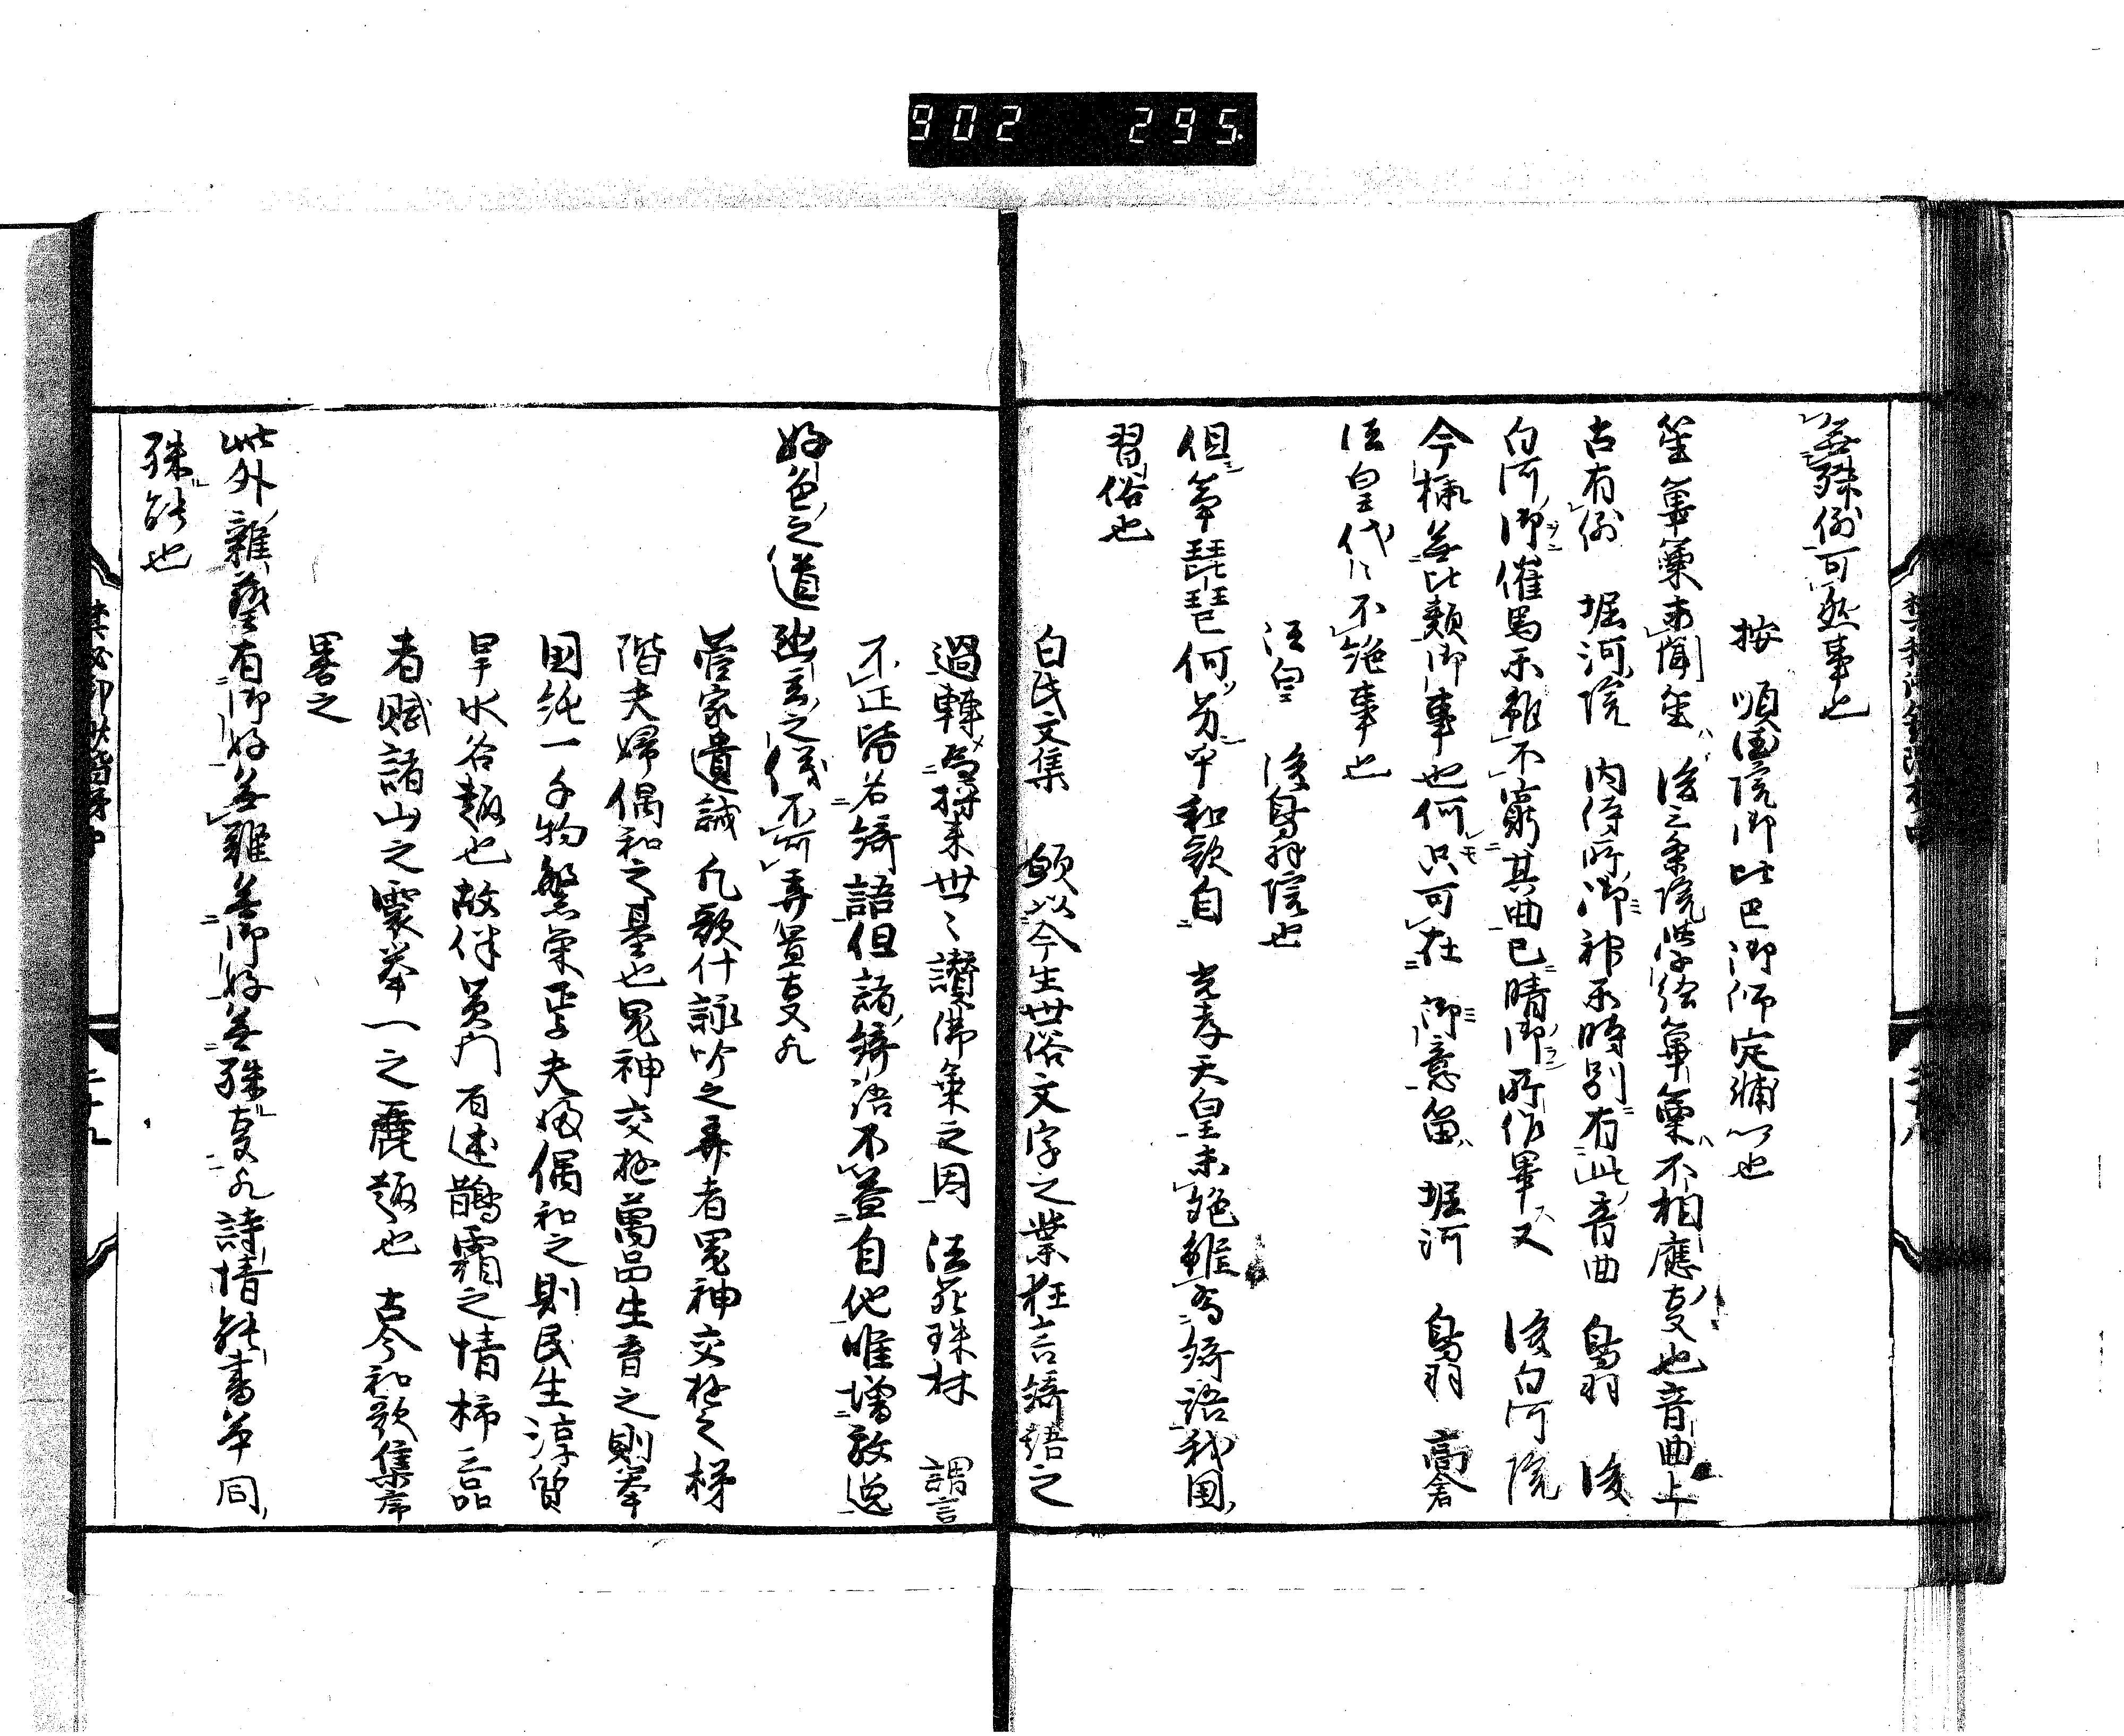 902 295
無殊例可然事也
按 順德院御比巴御師定輔卿也
笙篳篥未聞笙ハ後三条院学給篳篥ハ不相應事也音曲上
古有例 堀河院 内侍所御神楽時別有此音曲 鳥羽 後
白河御催馬楽雖不窮其曲已晴御所作畢又 後白河院
今様無比類御事也何只可在御意笛ハ堀河 鳥羽 高倉
法皇代々不絶事也
法皇 後鳥羽院也
但箏琵琶何劣乎和歌自 光孝天皇未絶雖為綺語我國
習俗也
白氏文集 願以今生世俗文字之業狂言綺語之
過轉為将来世々讃佛乗之因 法苑珠林 謂言
不正皆名綺語但諸綺語不益自他唯増放逸
好色之道幽玄之儀不可弄置事歟
菅家遺誡 凡歌什詠吟之弄者鬼神交極之梯
階夫婦偶和之基也鬼神交極萬品生育之則挙
國純一手物繁栄乎夫婦偶和之則民生淳質
旱水谷趣也故伴黄門有述鵲霜之情柿三品
者賦諸山之震挙一之麗趣也 古今和歌集序
畧之
此外雜藝有御好無難無御好無殊事歟詩情能書等同
殊能也
禁秘御抄階梯中
二十九